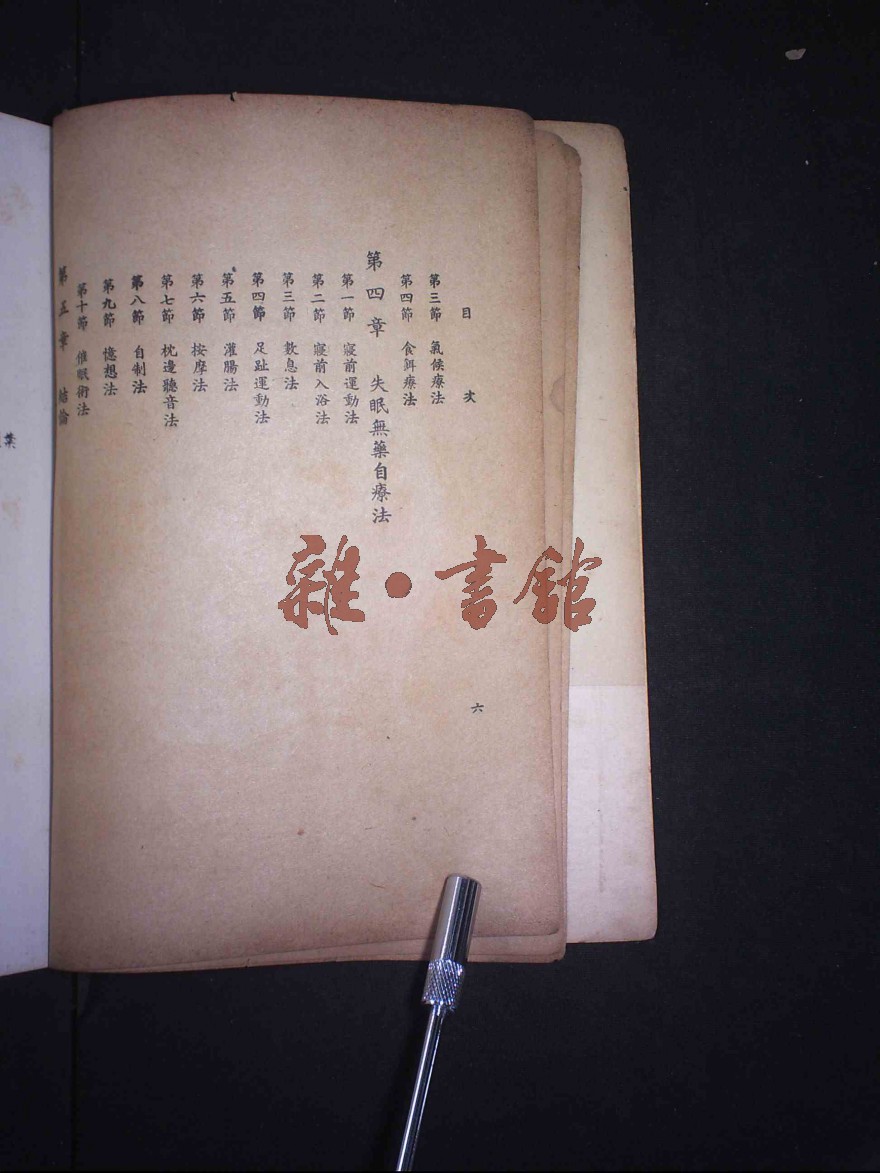 目 次
第三節 氣候療法
第四節 食餌療法
第四章 失眠無藥自療法
第一節 寢前運動法
第二節 寢前入浴法
第三節 數息法
第四節 足趾運動法
第五節 灌腸法
第六節 按摩法
第七節 枕邊聽音法
第八節 自制法
第九節 憶想法
第十節 催眠術法
第五章 結論
六
雜·書館